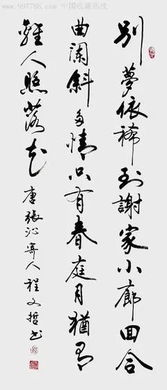 www.997788.com 中国收藏热线
别夢依稀到謝家小廊回合
曲闌斜多情只有春庭月猶为
離人照落花 唐張泌寄人程文哲书